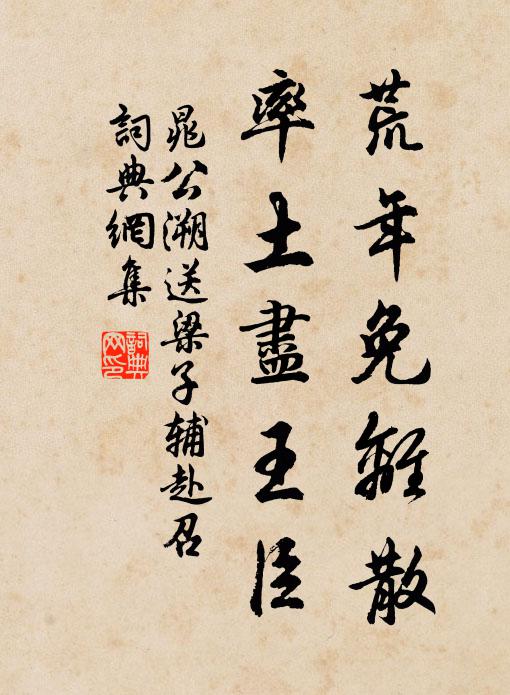 荒年免離散
率土盡王臣
晁公溯送梁子輔赴召
詞典網集
詞典網印